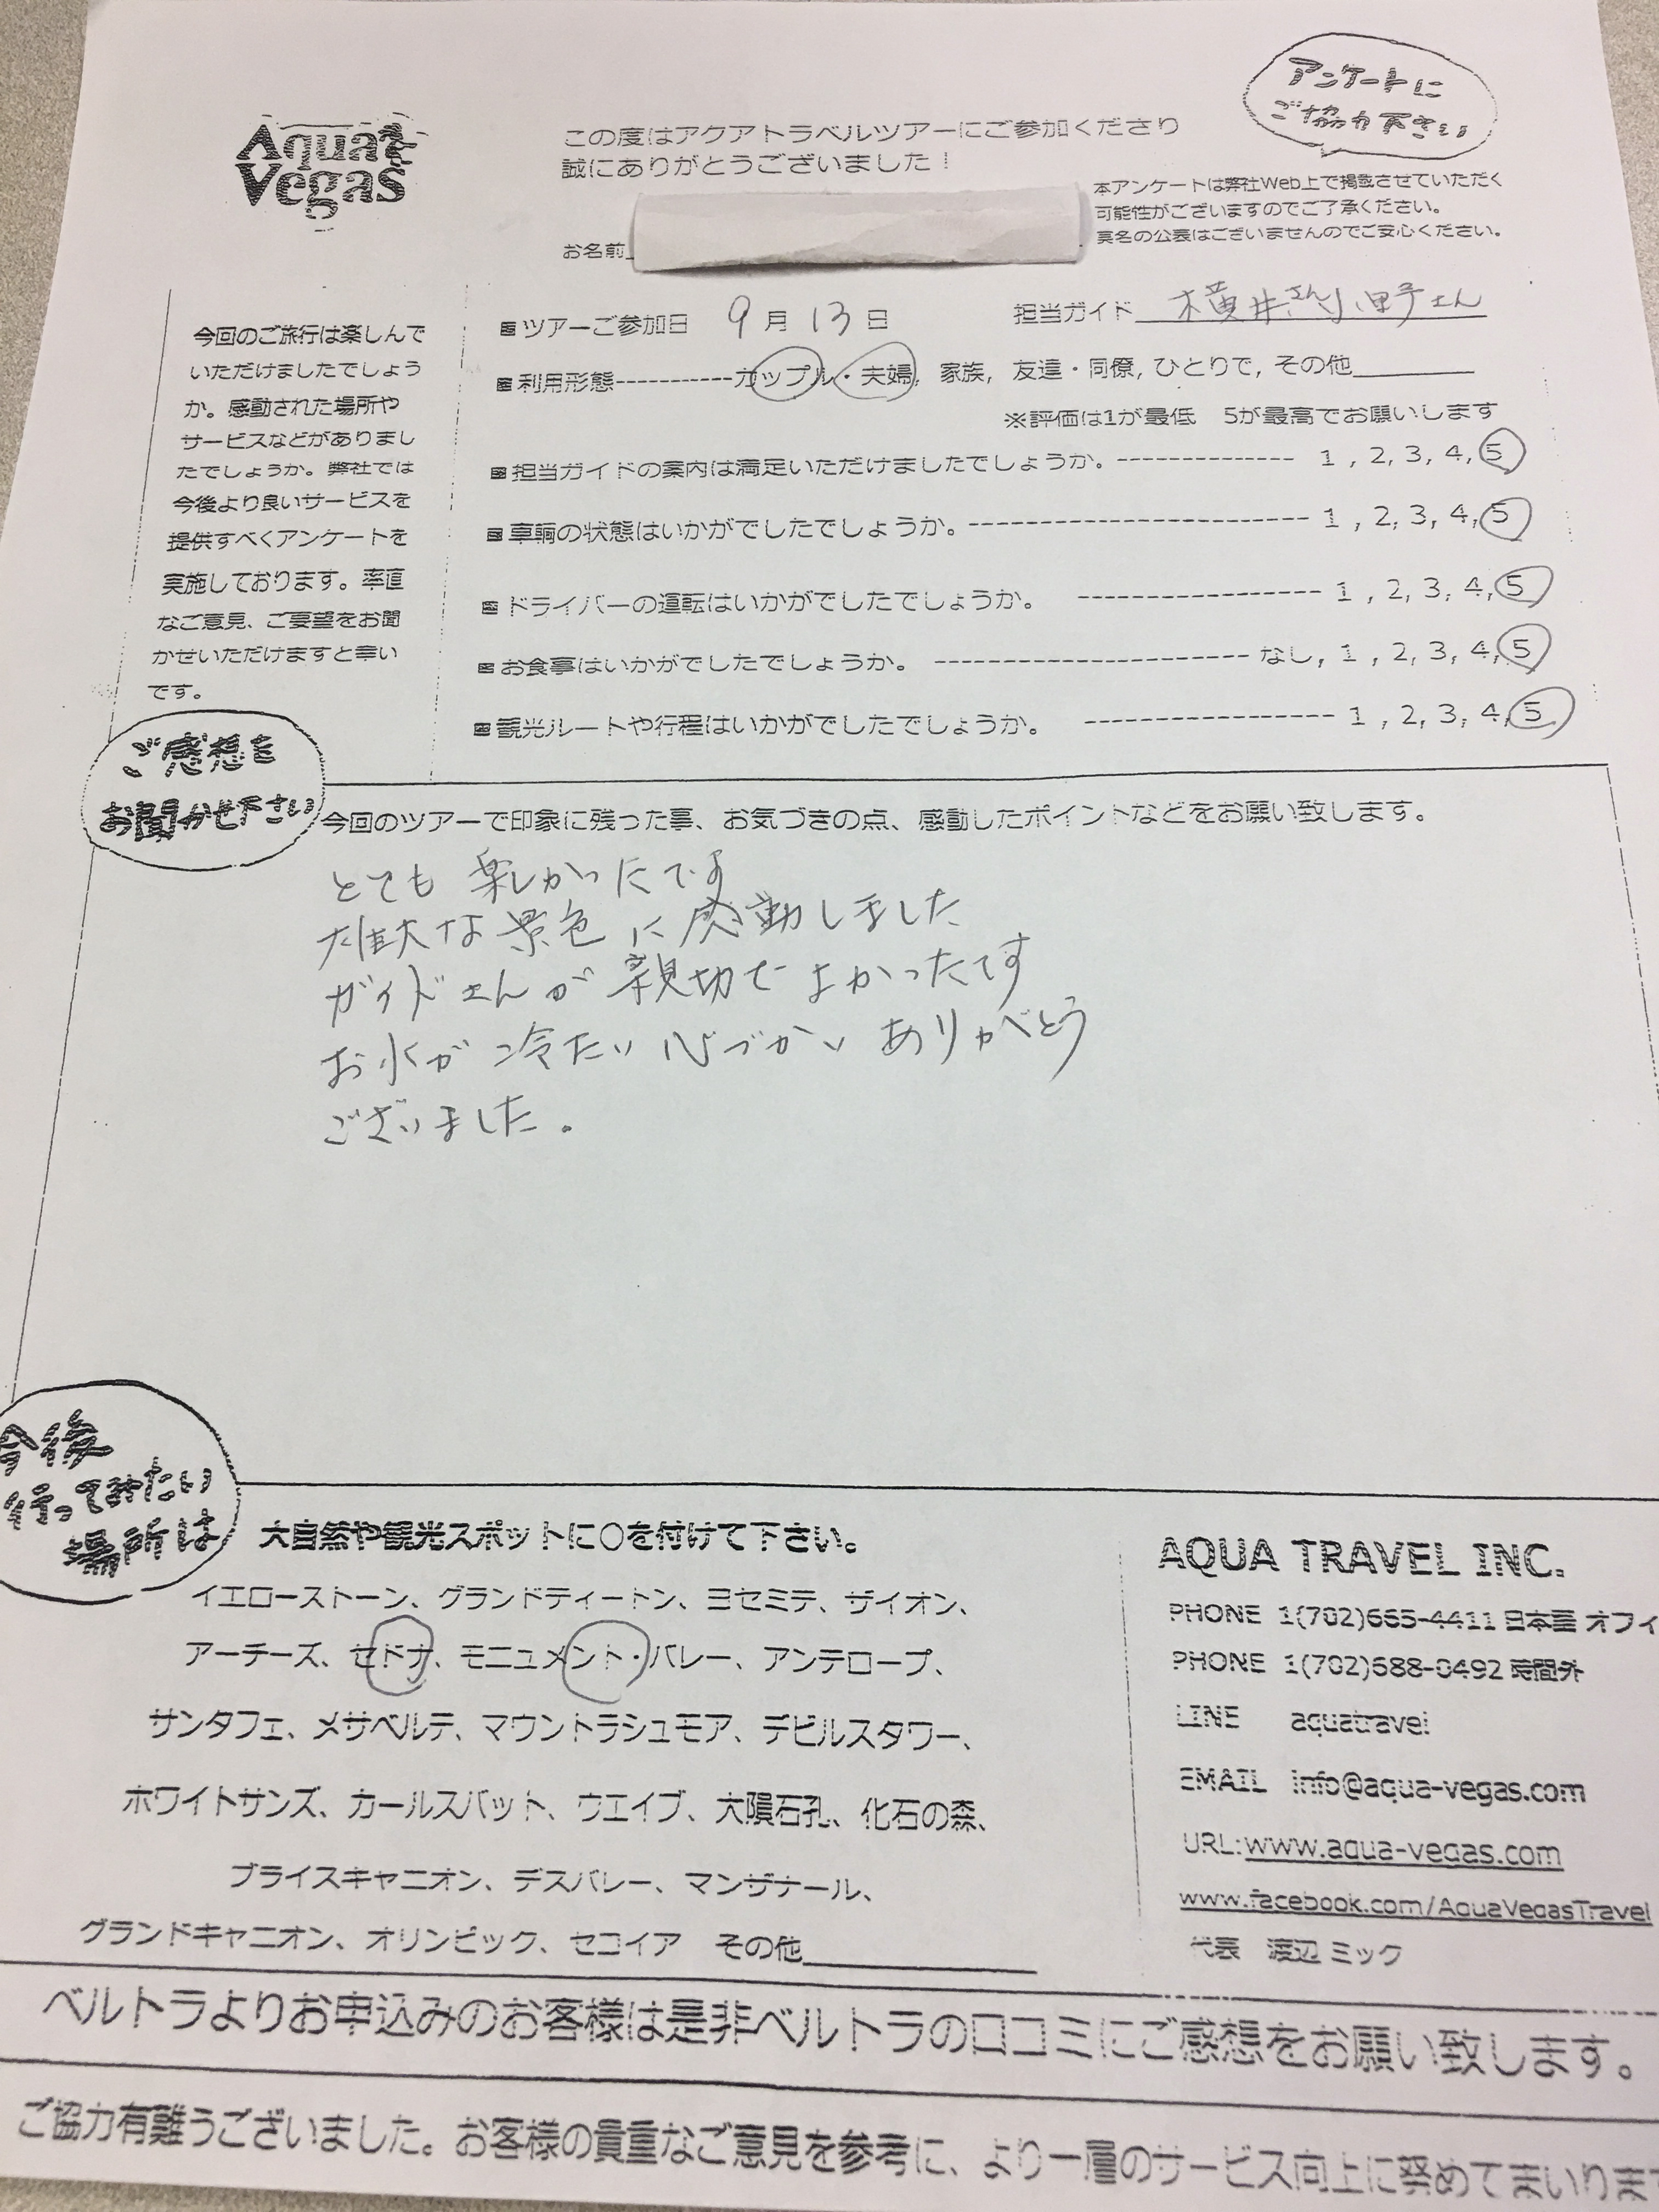 アンケートに
ご協力下さい
Aqua
Vegas
この度はアクアトラベルツアーにご参加くださり
誠にありがとうございました！
本アンケートは弊社Web上で掲載させていただく
可能性がございますのでご了承ください。
実名の公表はございませんのでご安心ください。
お名前
今回のご旅行は楽しんで
いただけましたでしょう
か。感動された場所や
サービスなどがありまし
たでしょうか。弊社では
今後より良いサービスを
提供すべくアンケートを
実施しております。率直
なご意見、ご要望をお聞
かせいただけますと幸い
です。
ツアーご参加日 9月13日 担当ガイド 横井さん小野さん
利用形態-----------カップル・夫婦, 家族, 友達・同僚, ひとりで, その他
※評価は1が最低 5が最高でお願いします
担当ガイドの案内は満足いただけましたでしょうか。-------------- 1 , 2, 3, 4, 5
車輌の状態はいかがでしたでしょうか。------------------------ 1 , 2, 3, 4, 5
ドライバーの運転はいかがでしたでしょうか。 ----------------- 1 , 2, 3, 4, 5
お食事はいかがでしたでしょうか。 ---------------------- なし, 1 , 2, 3, 4, 5
観光ルートや行程はいかがでしたでしょうか。 ----------------- 1 , 2, 3, 4, 5
ご感想を
お聞かせ下さい
今回のツアーで印象に残った事、お気づきの点、感動したポイントなどをお願い致します。
とても楽しかったです
雄大な景色に感動しました
ガイドさんが親切でよかったです
お水が冷たい心づかいありがとう
ございました。
今後
行ってみたい
場所は
大自然や観光スポットに○を付けて下さい。
イエローストーン、グランドティートン、ヨセミテ、ザイオン、
アーチーズ、セドナ、モニュメント・バレー、アンテロープ、
サンタフェ、メサベルテ、マウントラシュモア、デビルスタワー、
ホワイトサンズ、カールスバット、ウエイブ、大隕石孔、化石の森、
ブライスキャニオン、デスバレー、マンザナール、
グランドキャニオン、オリンピック、セコイア その他
AQUA TRAVEL INC.
PHONE 1(702)665-4411 日本語 オフィ
PHONE 1(702)688-0492 時間外
LINE aquatravel
EMAIL info@aqua-vegas.com
URL:www.aqua-vegas.com
www.facebook.com/AquaVegasTravel
代表 渡辺 ミック
ベルトラよりお申込みのお客様は是非ベルトラの口コミにご感想をお願い致します。
ご協力有難うございました。お客様の貴重なご意見を参考に、より一層のサービス向上に努めてまいります